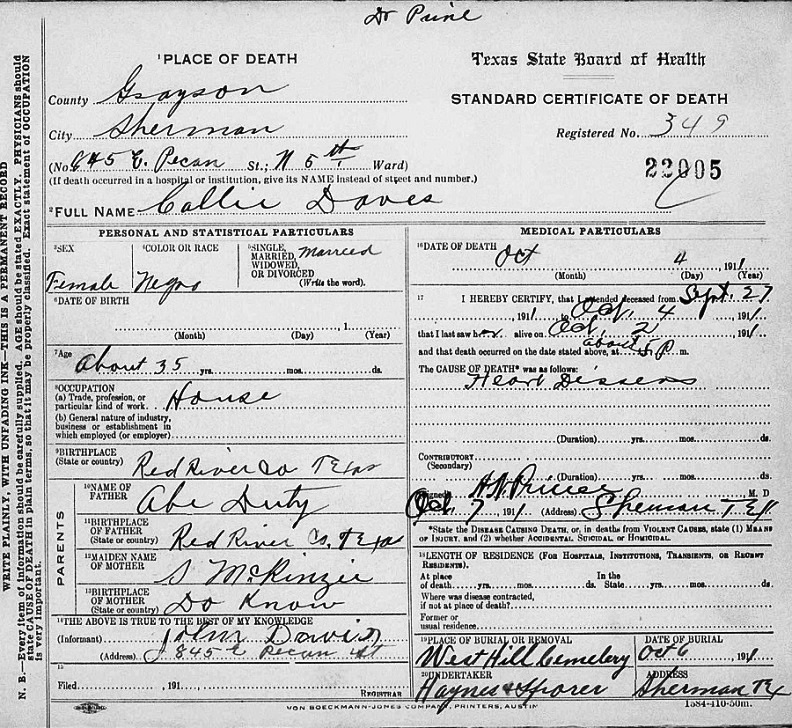 Dr Prine
¹PLACE OF DEATH
County Grayson
City Sherman
(No 845 E. Pecan St.; N 5th Ward)
(If death occurred in a hospital or institution, give its NAME instead of street and number.)
²FULL NAME Callie Daves
Texas State Board of Health
STANDARD CERTIFICATE OF DEATH
Registered No. 349
22005
PERSONAL AND STATISTICAL PARTICULARS
³SEX
Female
⁴COLOR OR RACE
Negro
⁵SINGLE, MARRIED, WIDOWED, OR DIVORCED
(Write the word).
Marreed
⁶DATE OF BIRTH
1
(Month) (Day) (Year)
⁷Age
About 35 yrs. mos. ds.
⁸OCCUPATION
(a) Trade, profession, or
particular kind of work. House
(b) General nature of industry,
business or establishment in
which employed (or employer)
⁹BIRTHPLACE
(State or country) Red River Co Texas
PARENTS
¹⁰NAME OF
FATHER Abe Duty
¹¹BIRTHPLACE
OF FATHER
(State or country) Red River Co. Texas
¹²MAIDEN NAME
OF MOTHER S McKinzie
¹³BIRTHPLACE
OF MOTHER
(State or country) Do Know
¹⁴THE ABOVE IS TRUE TO THE BEST OF MY KNOWLEDGE
(Informant) John Davis
(Address) 845 E Pecan St
¹⁵
Filed , 191
REGISTRAR
MEDICAL PARTICULARS
¹⁶DATE OF DEATH Oct 4 , 1911
(Month) (Day) (Year)
¹⁷ I HEREBY CERTIFY, that I attended deceased from Sept. 27
, 1911 to Oct. 4 1911
that I last saw her alive on Oct. 2 1911
and that death occurred on the date stated above, at about 5 P m.
The CAUSE OF DEATH* was as follows:
Heart Dissens
(Duration) yrs. mos. ds.
CONTRIBUTORY
(Secondary)
(Duration) yrs. mos. ds.
Signed M. D
Oct. 7 1911 (Address) Sherman
*State the DISEASE CAUSING DEATH, or, in deaths from VIOLENT CAUSES, state (1) MEANS
OF INJURY, and (2) whether ACCIDENTAL SUICIDAL or HOMICIDAL.
¹⁸LENGTH OF RESIDENCE (FOR HOSPITALS, INSTITUTIONS, TRANSIENTS, OR RECENT
RESIDENTS).
At place In the
of death yrs. mos. ds. State yrs. mos. ds.
Where was disease contracted,
if not at place of death?
Former or
usual residence
¹⁹PLACE OF BURIAL OR REMOVAL
West Hill Cemetery
DATE OF BURIAL
Oct 6 1911
²⁰UNDERTAKER
Haynes & Sporer
ADDRESS
Sherman Tex
1584-410-50m.
VON BOECKMANN-JONES COMPANY, PRINTERS, AUSTIN
WRITE PLAINLY, WITH UNFADING INK—THIS IS A PERMANENT RECORD
N. B.—Every item of information should be carefully supplied. AGE should be stated EXACTLY. PHYSICIANS should
state CAUSE OF DEATH in plain terms, so that it may be properly classified. Exact statement of OCCUPATION
is very important.